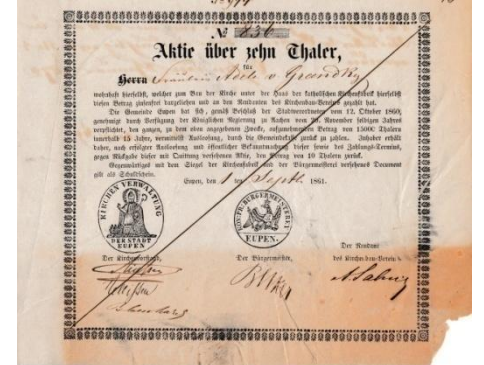 № 836
Aktie über zehn Thaler,
für
Herrn Fräulein Adele v Grandry
wohnhaft hierselbst, welcher zum Bau der Kirche unter der Haas der katholischen Kirchenfabrik hierselbst
diesen Betrag zinsenfrei dargeliehen und an den Rendanten des Kirchenbau-Vereins gezahlt hat.
Die Gemeinde Eupen hat sich, gemäß Beschluß der Stadtverordneten vom 12. Oktober 1860,
genehmigt durch Verfügung der Königlichen Regierung zu Aachen vom 23. November selbigen Jahres
verpflichtet, den ganzen, zu dem oben angegebenen Zwecke, aufzunehmenden Betrag von 15000 Thalern
innerhalb 15 Jahre, vermittelst Ausloosung, durch die Gemeindekasse zurück zu zahlen. Inhaber erhält
daher, nach erfolgter Ausloosung und öffentlicher Bekanntmachung dieser sowie des Zahlungs-Termins,
gegen Rückgabe dieser mit Quittung versehenen Aktie, den Betrag von 10 Thaler zurück.
Gegenwärtiges mit dem Siegel der Kirchenfabrik und der Bürgermeisterei versehenes Document
gilt als Schuldschein.
Eupen, den 1 ten Septb. 1861.
KIRCHEN VERWALTUNG
DER STADT
EUPEN
BÜRGERMEISTEREI
EUPEN.
Der Kirchenvorstand,
Der Bürgermeister,
Der Rendant
des Kirchenbau-Vereins